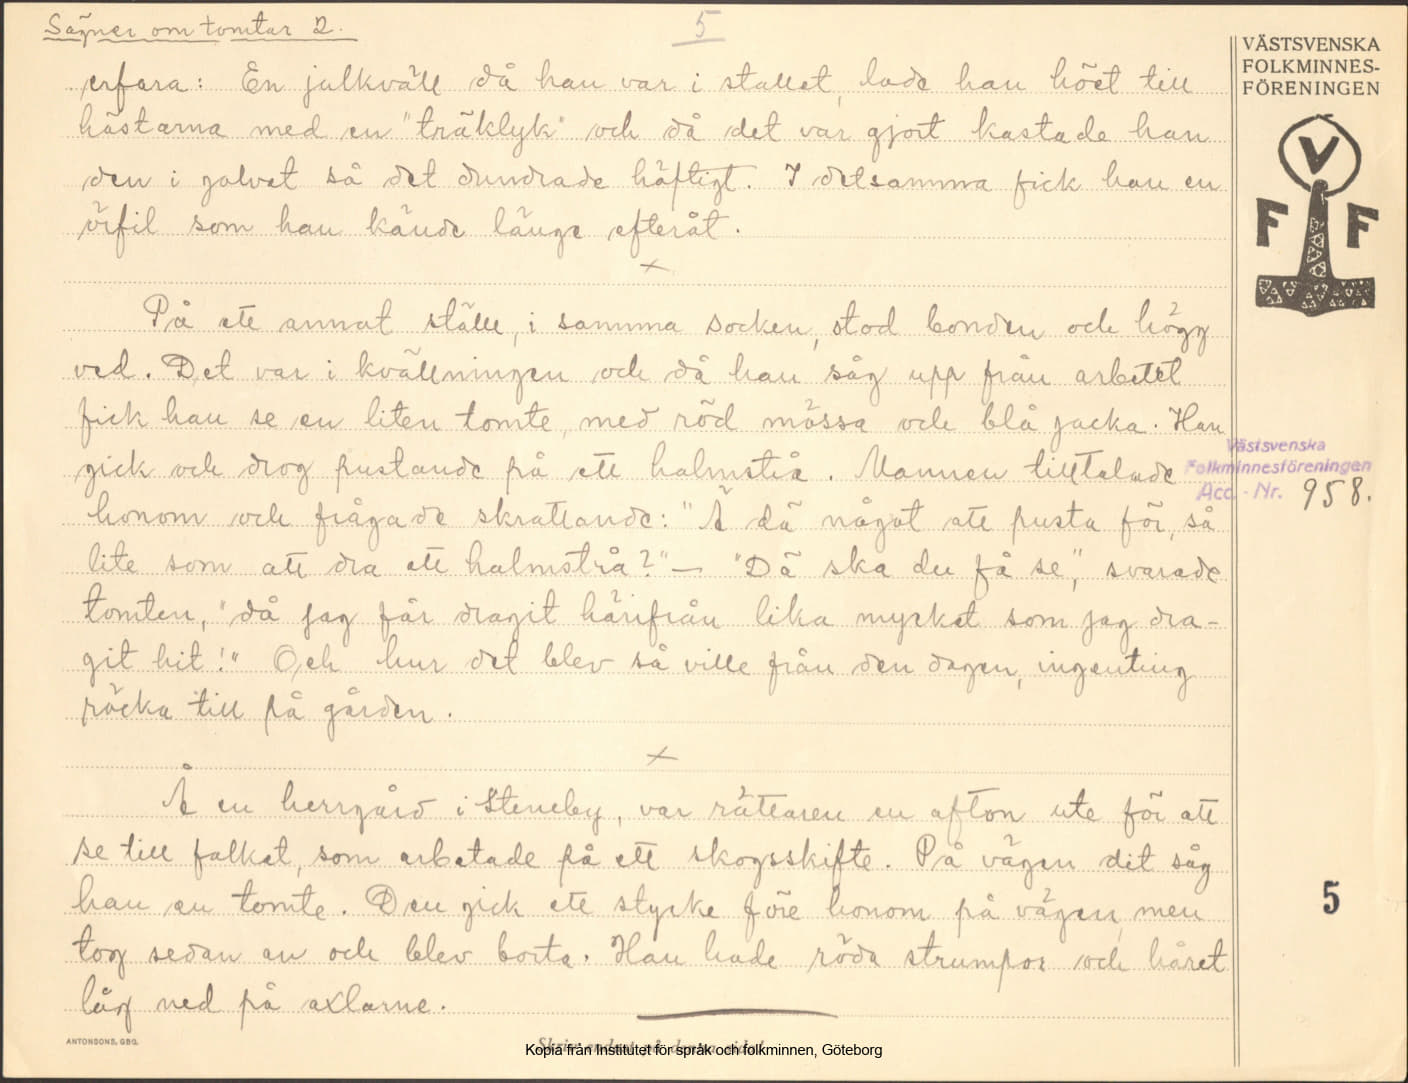 Sägner om tomtar 2.
5
VÄSTSVENSKA
FOLKMINNES-
FÖRENINGEN
V
F F
erfara: En julkväll då han var i stallet, lade han höet till
hästarna med en "träklyk" och då det var gjort kastade han
den i golvet så det dundrade häftigt. I detsamma fick han en
örfil som han kände länge efteråt.
x
På ett annat ställe, i samma socken, stod bonden och högg
ved. Det var i kvällningen och då han såg upp från arbetet
fick han se en liten tomte, med röd mössa och blå jacka. Han
gick och drog pustande på ett halmstrå. Mannen tilltalade
honom och frågade skrattande: "Ä dä något att pusta för, så
lite som att dra ett halmstrå?" — "Dä ska du få se", svarade
tomten, "då jag får dragit härifrån lika mycket som jag dra-
git hit!" Och hur det blev så ville från den dagen, ingenting
räcka till på gården.
x
Å en herrgård i Steneby, var rättaren en afton ute för att
se till folket, som arbetade på ett skogsskifte. På vägen dit såg
han en tomte. Den gick ett stycke före honom på vägen, men
tog sedan av och blev borta. Han hade röda strumpor och håret
låg ned på axlarne.
Västsvenska
Folkminnesföreningen
Acc. - Nr. 958.
5
ANTONSONS, GBG.
Skriv endast på denna sida!
Kopia från Institutet för språk och folkminnen, Göteborg